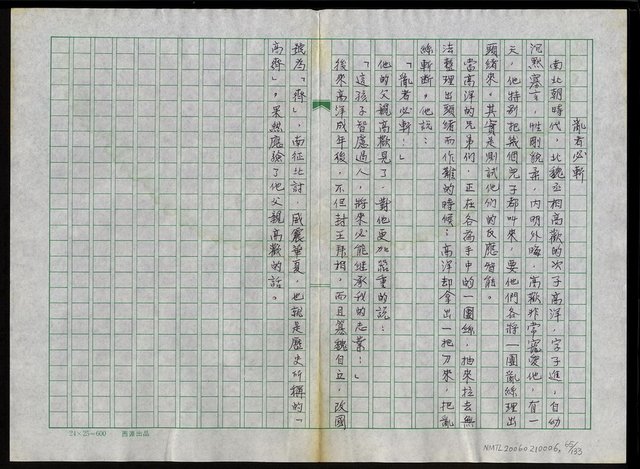 亂者必斬
南北朝時代，北魏丞相高歡的次子高洋，字子進，自幼
沉默寡言，性剛貌柔，內明外晦，高歡非常寵愛他，有一
天，他特別把幾個兒子都叫來，要他們各將一團亂絲理出
頭緒來，其實是測試他們的反應智能。
當高洋的兄弟們，正在各為手中的一團絲，抽來拉去無
法整理出頭緒而作難的時候；高洋却拿出一把刀來，把亂
絲斬斷。他說：
「亂者必斬！」
他的父親高歡見了，對他更加器重的說：
「這孩子智慮過人，將來必能繼承我的志業！」
後來高洋成年後，不但封王拜相，而且篡魏自立，改國
號為「齊」，南征北討，威震華夏，也就是歷史所稱的「
高齊」，果然應驗了他父親高歡的話。
24×25=600
NMTL20060210006
65/133